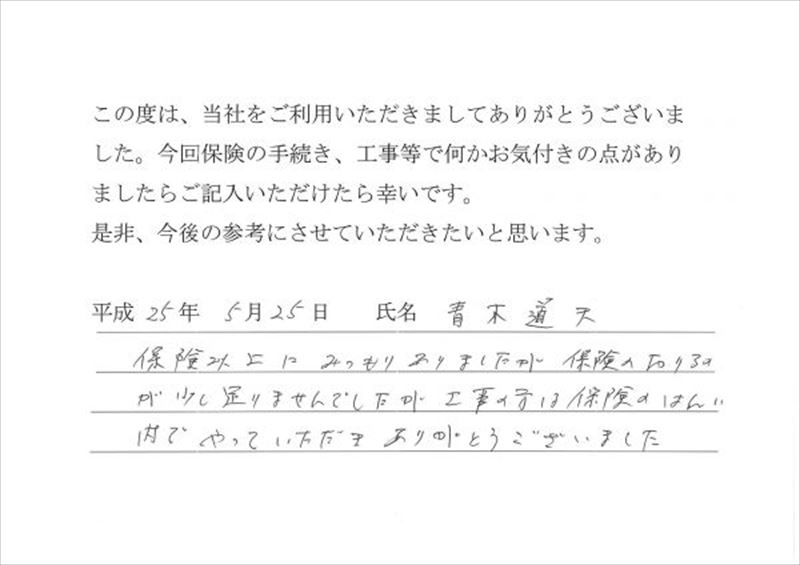 この度は、当社をご利用いただきましてありがとうございま
した。今回保険の手続き、工事等で何かお気付きの点があり
ましたらご記入いただけたら幸いです。
是非、今後の参考にさせていただきたいと思います。
平成 25年 5月25日 氏名 青木道天
保険以上にみつもりありましたが 保険のおりるの
が少し足りませんでしたが 工事の方は保険のはんい
内で やっていただき ありがとうございました